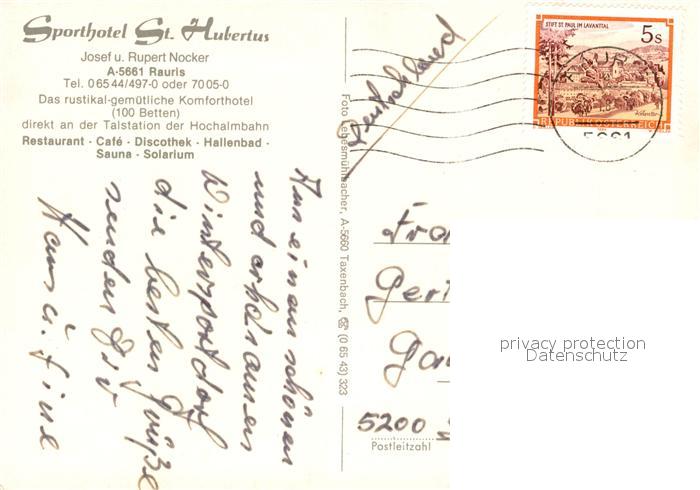 Sporthotel St. Hubertus
Josef u. Rupert Nocker
A-5661 Rauris
Tel. 0 65 44/497-0 oder 70 05-0
Das rustikal-gemütliche Komforthotel
(100 Betten)
direkt an der Talstation der Hochalmbahn
Restaurant - Café - Discothek - Hallenbad -
Sauna - Solarium
Aus einem schönen
und erholsamen
Wintersportdorf
die besten Grüße
senden Dir
Hans u.
Foto Lebesmühlbacher, A-5660 Taxenbach, ☎ (0 65 43) 323
Deutschland
STIFT ST. PAUL IM LAVANTTAL
5 S
REPUBLIK ÖSTERREICH
5661
Fra
Ger
5200
Postleitzahl
privacy protection
Datenschutz